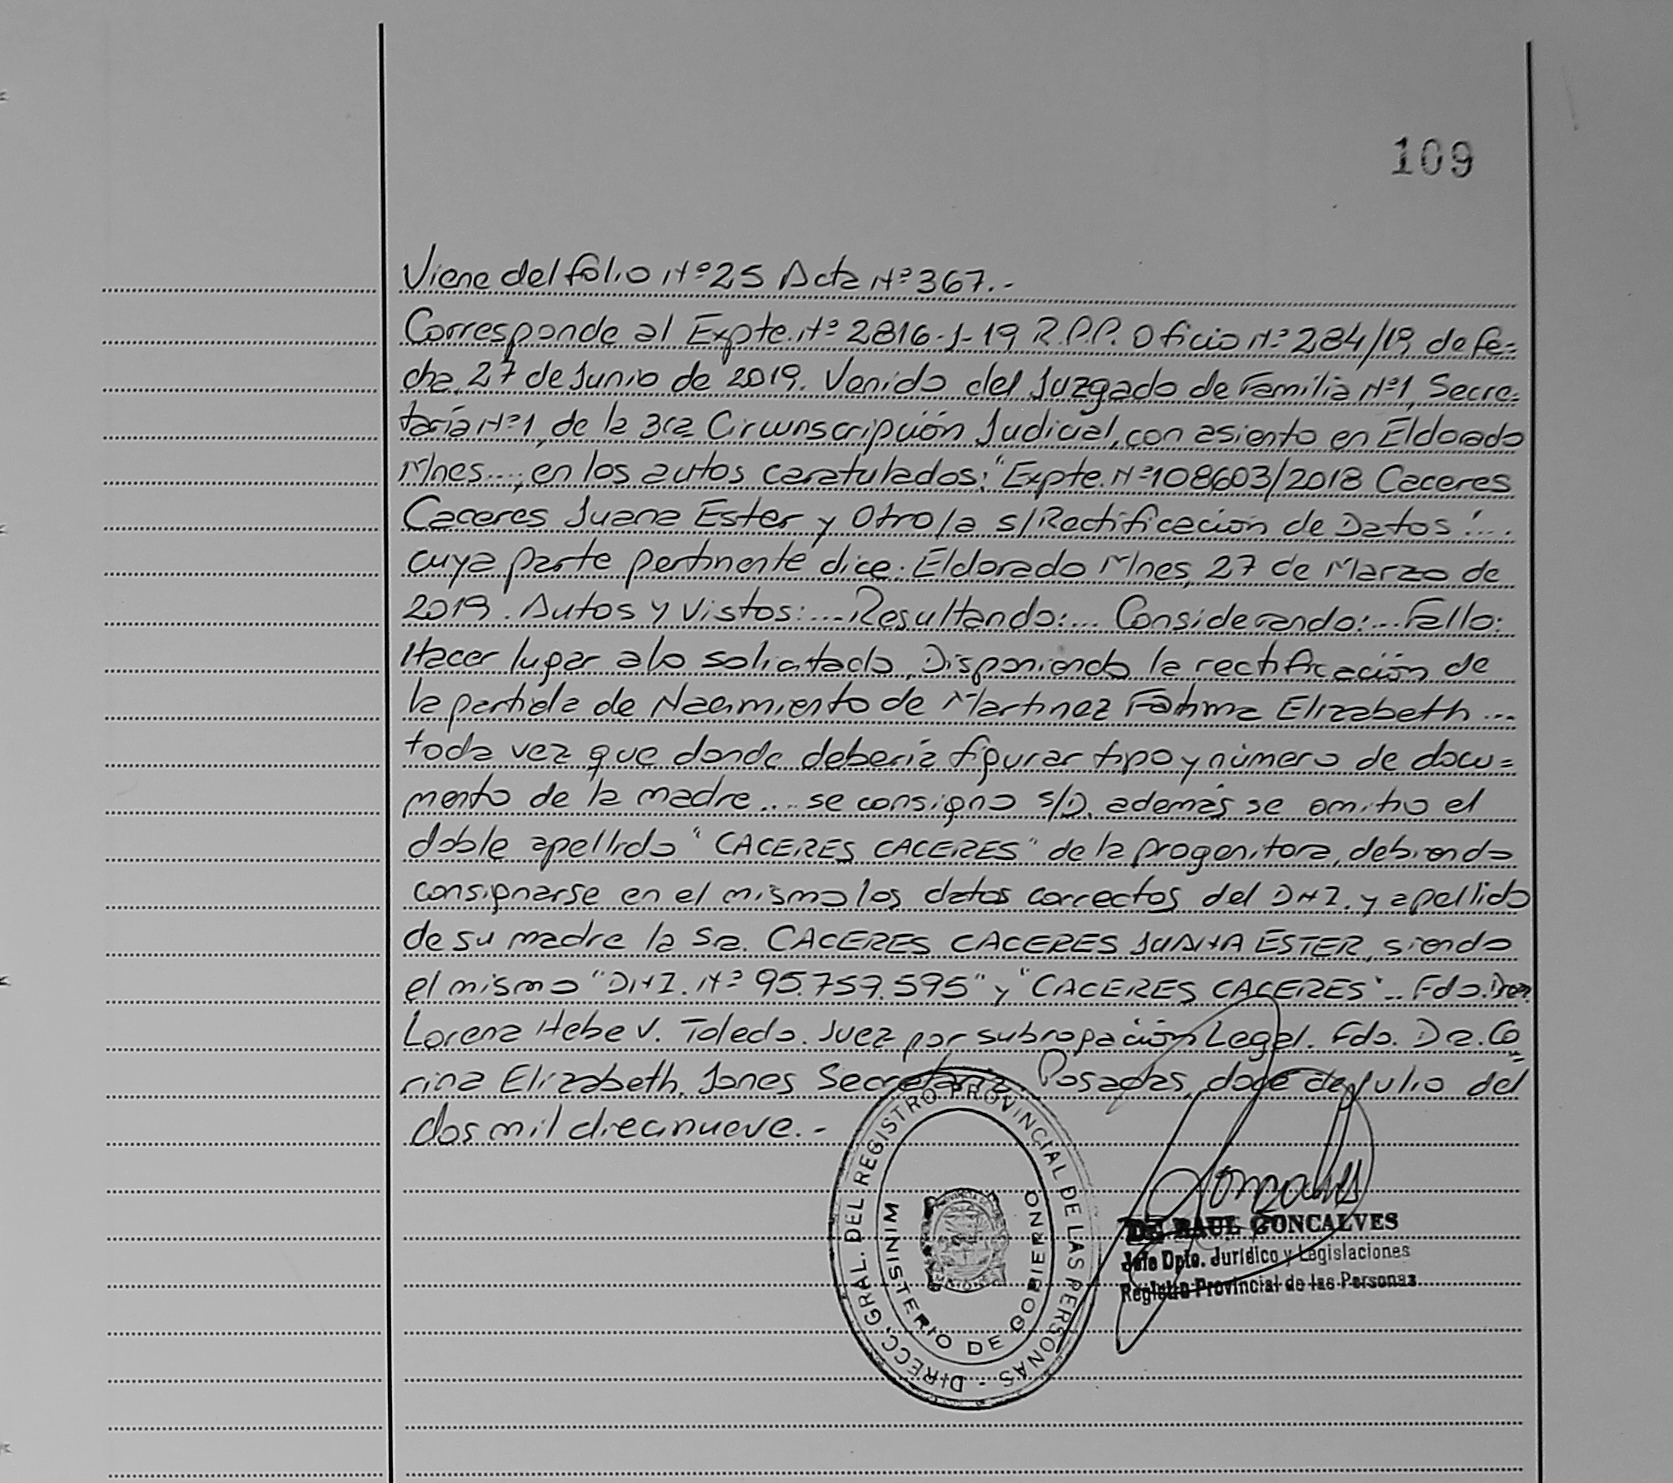 109
Viene del folio Nº 25 Acta Nº 367.-
Corresponde al Expte. Nº 2816-J-19 R.P.P. Oficio Nº 284/19 de fe=
cha 27 de Junio de 2019. Venido del Juzgado de Familia Nº1, Secre=
taría Nº1, de la 3ra Circunscripción Judicial, con asiento en Eldorado
Mnes...; en los autos caratulados: "Expte. Nº 108603/2018 Caceres
Caceres Juana Ester y Otro/a s/Rectificación de Datos"....
cuya parte pertinente dice: Eldorado Mnes, 27 de Marzo de
2019. Autos y Vistos:.... Resultando:... Considerando:... Fallo:
Hacer lugar a lo solicitado, Disponiendo la rectificación de
la partida de Nacimiento de Martinez Fatima Elizabeth ...
toda vez que donde debería figurar tipo y número de docu=
mento de la madre .... se consigno S/D, además se omitio el
doble apellido "CACERES CACERES" de la progenitora, debiendo
consignarse en el mismo los datos correctos del DNI. y apellido
de su madre la Sra. CACERES CACERES JUANA ESTER, siendo
el mismo "DNI. Nº 95.759.595" y "CACERES CACERES".. Fdo. Dra.
Lorena Hebe V. Toledo. Juez por subrogación Legal. Fdo. Dra. Co=
rina Elizabeth Jones Secretaria. Posadas, doce de Julio del
dos mil diecinueve.-
DIRECC. GRAL. DEL REGISTRO PROVINCIAL DE LAS PERSONAS -
MINISTERIO DE GOBIERNO
RAUL GONCALVES
Jefe Dpto. Jurídico y Legislaciones
Registro Provincial de las Personas